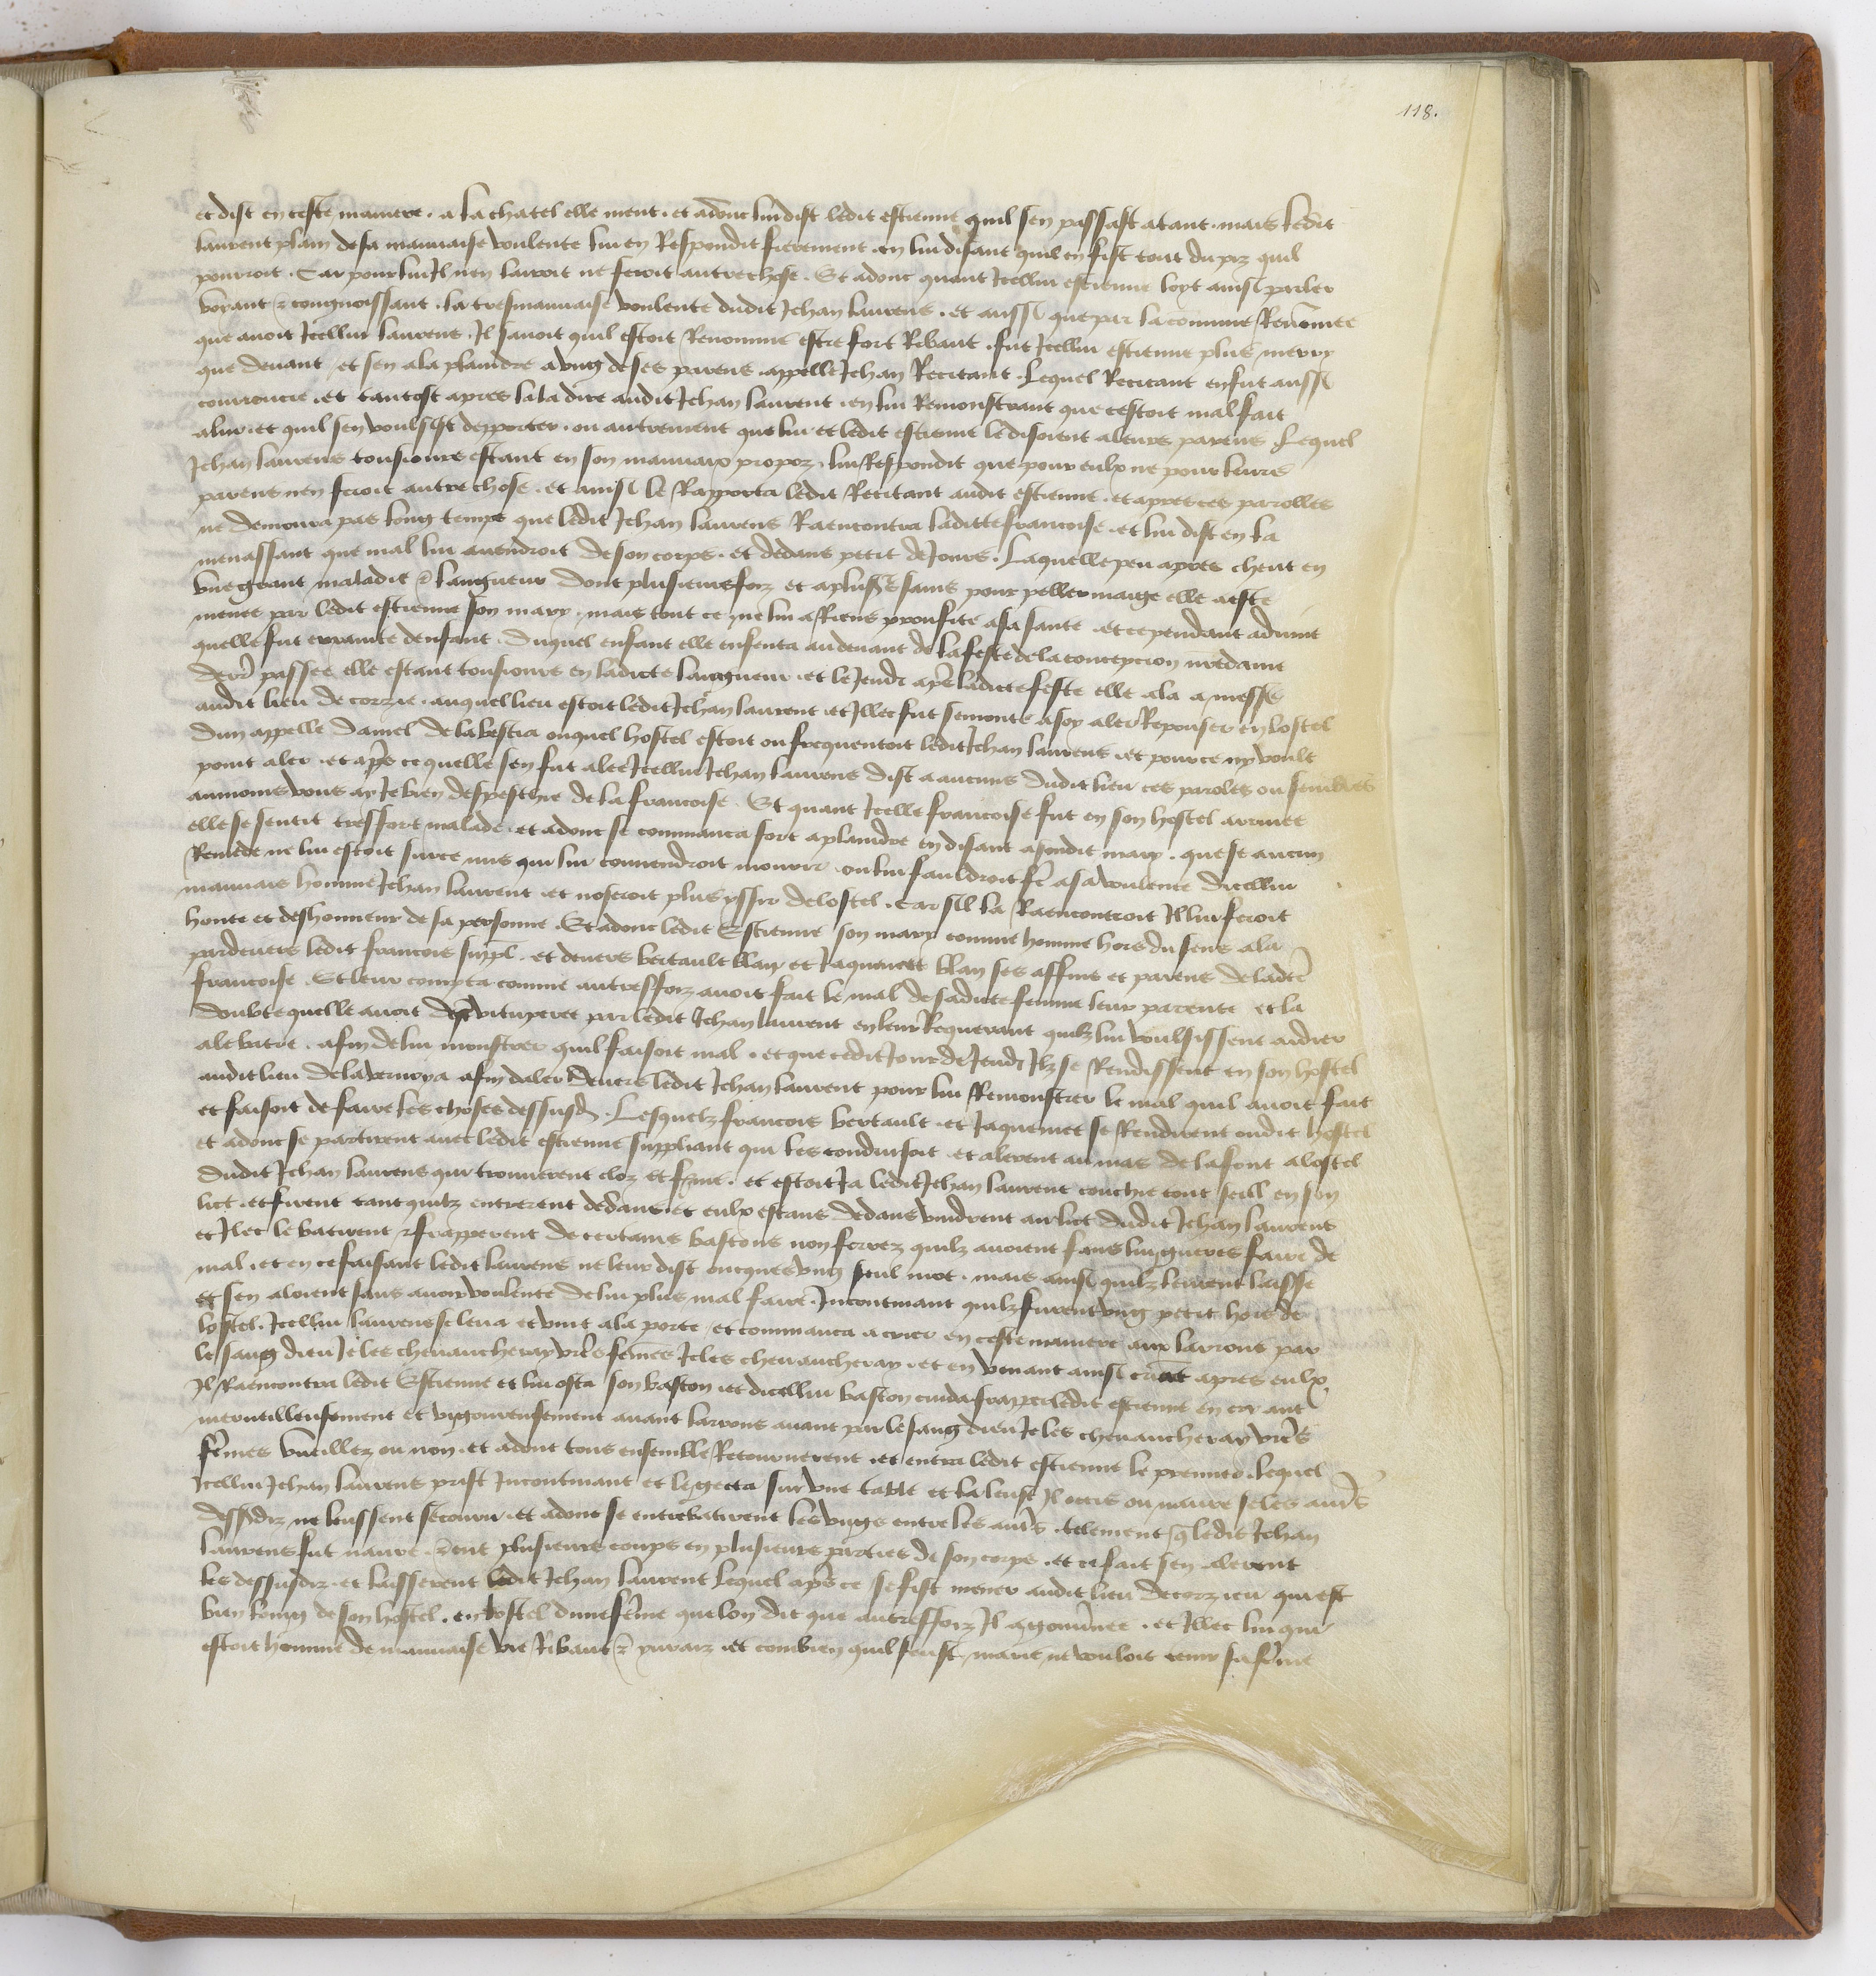 118.
et dist en ceste maniere . a la chatel elle ment . et adonc lui dist ledit estienne quil sen passast atant . mais ledit
laurent plain de sa mauvaise voulente lui en Respondit fierement en lui disant quil en fist tout du piz quil
pourroit . Car pour lui Il nen lairoit ne feroit autre chose . Et adonc quant Icellui estienne loyt ainsi parler
voyant & congnoissant la tresmauvaise voulente dudit Jehan laurens . et aussi que par la commune Renommee
que avoit Icellui laurens . Il savoit quil estoit Renomme estre fort Ribaut . fut Icellui estienne plus merry
que devant et sen ala plaindre a ung de ses parens appelle Jehan Recitant . Lequel Recitant en fut aussi
courroucie . et tantost apres lala dire audit Jehan laurent . en lui Remonstrant que cestoit mal fait
alui et quil sen voulsist depporter . ou autrement que lui et ledit estienne le disoient a leurs parens . Lequel
Jehan laurens tousiours estant en son mauvaix propoz . lui Respondit que pour eulx ne pour leurs
parens nen feroit autre chose . et ainsi le Rapporta ledit Recitant audit estienne . et apres ces parolles
ne demoura pas long temps que ledit Jehan laurens Raencontra laditte francoise . et lui dist en la
menassant que mal lui avendroit de son corps . et dedans petit de Jours . Laquelle peu apres cheut en
une grant maladie & langueur dont plusieurs foiz et a plusrs sains pour peller maige elle a este
menee par ledit estienne son mary . mais tout ce ne lui a Riens prouffite a sa sante . et cependant advint
quelle fut ensainte denfant . Duquel enfant elle enfenta au devant de la feste de la concepcion nredame
derr passee elle estant tousiours en ladicte langueur . et le Jeudi apres ladicte feste elle ala a messe
audit lieu de corzie . auquel lieu estoit ledit Jehan laurent et Illec fut semonte a soy aler Repouser en lostel
dun appelle Daniel de la bestia ouquel hostel estoit ou frequentoit ledit Jehan laurens . et pour ce ny voult
point aler . et apres ce quelle sen fut alee Icellui Jehan laurens dist a aucuns dudit lieu ces paroles ou semblables
aumoins vous ay Je bien despeschie de la francoise . Et quant Icelle francoise fut en son hostel arrivee
elle se sentit tresfort malade . et adonc se commanca fort a plaindre en disant a sondit mary . que se aucun
Remede ne lui estoit sur ce mis qui lui convendroit mourir . ou lui fauldroit fere a sa voulente dicellui
mauvais homme Jehan laurent et noseroit plus yssir de lostel . Car sil la Raencontroit Il lui feroit
honte et deshonneur de sa personne . Et adonc ledit Estienne son mary comme homme hors du sens ala
pardevers ledit francois suppl . et devers bertault blan et Jaquemet blan ses affins et parens de ladte
francoise . Et leur compta comme autresfoiz avoit fait le mal de sadicte femme leur parente et la
doubte quelle avoit destre vituperee par ledit Jehan laurent en leur Requerant quilz lui voulsissent aidier
a le batre . afin de lui monstrer quil faisoit mal . et que cedit Jour de Jeudi Ilz se Rendissent en son hostel
audit lieu de la vernoya afin daler devers ledit Jehan laurent pour lui Remonstrer le mal quil avoit fait
et faisoit de faire les choses dessusd . Lesquelz francois bertault et Jaquemet se Rendirent oudit hostel
et adonc se partirent avec ledit estienne suppliant qui les conduisoit et alerent au mas de la font a lostel
dudit Jehan laurens qui trouverent cloz et ferme . et estoit Ja ledit Jehan laurent couchie tout seul en son
lict . et firent tant quilz entrerent dedans et eulx estans dedans vindrent au lict dudit Jehan laurent
et Illec le batirent & frapperent de certains bastons non ferrez quilz avoient sans lui gueres faire de
mal . et en ce faisant ledit laurens ne leur dist oncques ung seul mot . mais ainsi quilz leurent laisse
et sen aloient sans avoir voulente de lui plus mal faire . Incontinant quilz furent ung petit hors de
lostel . Icellui laurens se leva et vint a la porte et commanca a crier en ceste maniere aux larrons par
le sang dieu Je les chevaucheray vres femes Je les chevaucheray . et en venant ainsi criant apres eulx
Il Raencontra ledit Estienne et lui osta son baston . et dicellui baston cuida frapper ledit estienne en criant
merveilleusement et vigoureusement avant larrons avant par le sang dieu Je les chevaucheray vres
femes vueillez ou non . et adonc tous ensemble Retournerent et entra ledit estienne le premier . Lequel
Icellui Jehan laurens prist Incontinant et le gecta sur une table et la leust Il occis ou navre se les autres
dessusdiz ne leussent secouru . et adonc se entrebatirent les ungs entre les autres . telement que ledit Jehan
laurens fut navre . & eut plusieurs coups en plusieurs parties de son corps . et ce fait sen alerent
les dessusdiz . et laisserent ledit Jehan laurent Lequel apres ce se fist mener audit lieu de corzieu qui est
bien loing de son hostel . en lostel dune feme que lon dit que autresfoiz Il a gouvernee . et Illec lui qui
estoit homme de mauvaise vie Ribaut & et combien quil feust marie ne vouloit tenir sa feme